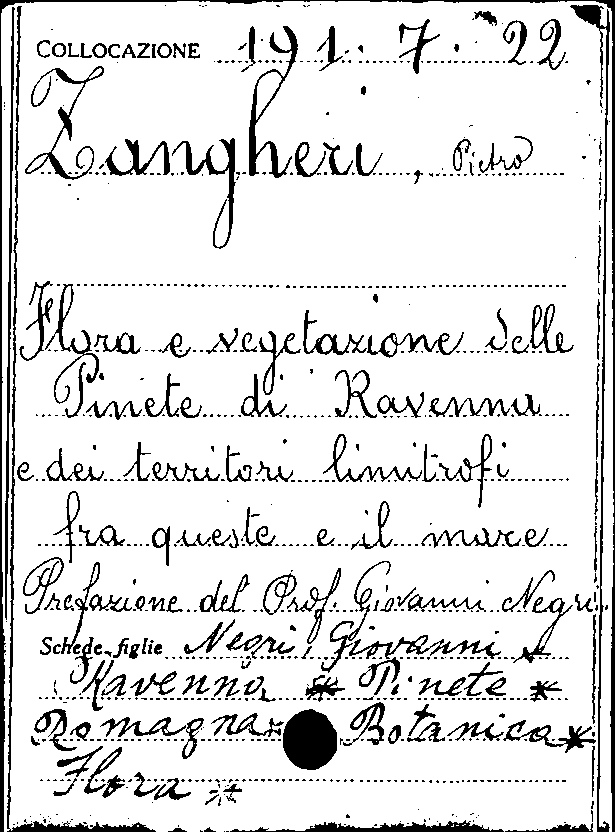 COLLOCAZIONE 191. 7. 22
Zangheri, Pietro
Flora e vegetazione delle
Pinete di Ravenna
e dei territori limitrofi
fra queste e il mare
Prefazione del Prof. Giovanni Negri.
Schede figlie Negri, Giovanni *
Ravenna * Pinete *
Romagna * Botanica *
Flora *